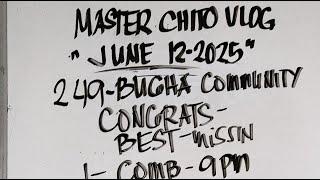 MASTER CHITO VLOG
"JUNE 12-2025"
249-BUGHA COMMUNITY
CONGRATS-
BEST-MISSIN
1- COMB-9PM